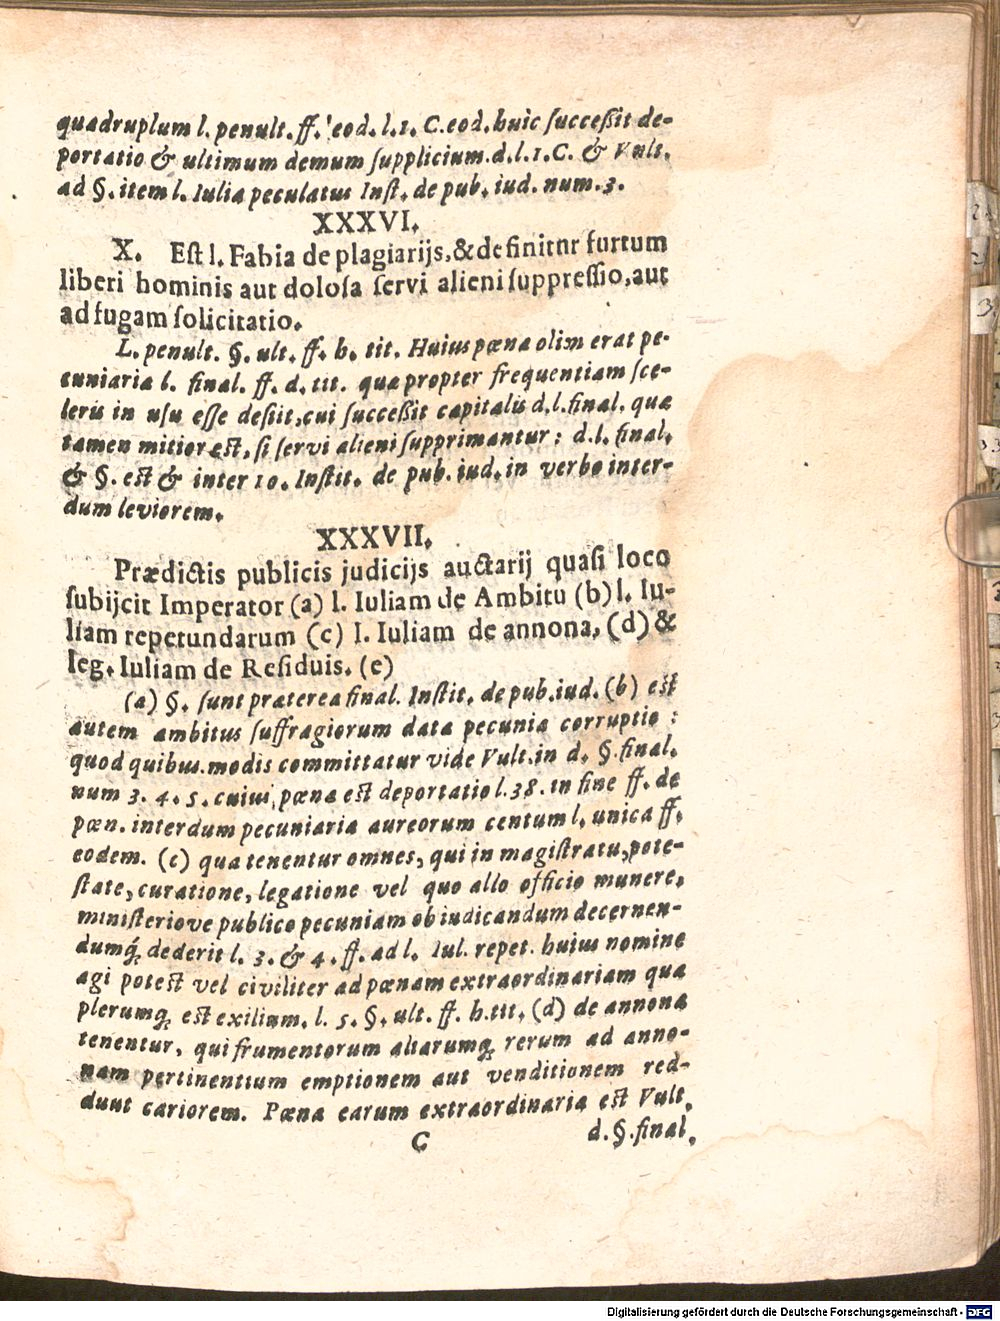 quadruplum l. penult. ff. eod. l. 1. C. eod. huic succeßit de-
portatio & ultimum demum supplicium. d. l. 1. C. & Vult.
ad §. item l. Iulia peculatus Inst. de pub. iud. num. 3.
XXXVI.
X. Est l. Fabia de plagiarijs, & definitur furtum
liberi hominis aut dolosa servi alieni suppressio, aut
ad fugam solicitatio.
L. penult. §. ult. ff. h. tit. Huius pœna olim erat pe-
cuniaria l. final. ff. d. tit. quæ propter frequentiam sce-
leris in usu esse desiit, cui succeßit capitalis d. l. final. quæ
tamen mitior est, si servi alieni supprimantur: d. l. final.
& §. est & inter 10. Instit. de pub. iud. in verbo inter-
dum leviorem.
XXXVII.
Prædictis publicis judicijs auctarij quasi loco
subijcit Imperator (a) l. Iuliam de Ambitu (b) l. Iu-
liam repetundarum (c) l. Iuliam de annona, (d) &
leg. Iuliam de Residuis. (e)
(a) §. sunt præterea final. Instit. de pub. iud. (b) est
autem ambitus suffragiorum data pecunia corruptio:
quod quibus. modis committatur vide Vult. in d. §. final.
num 3. 4. 5. cuius pœna est deportatio l. 38. in fine ff. de
pœn. interdum pecuniaria aureorum centum l. unica ff.
eodem. (c) qua tenentur omnes, qui in magistratu, pote-
state, curatione, legatione vel quo allo officio munere,
ministeriove publico pecuniam ob iudicandum decernen-
dumq́; dederit l. 3. & 4. ff. ad l. Iul. repet. huius nomine
agi potest vel civiliter ad pœnam extraordinariam quæ
plerumq; est exilium. l. 5. §. ult. ff. h. tit. (d) de annona
tenentur, qui frumentorum aliarumq; rerum ad anno-
nam pertinentium emptionem aut venditionem red-
dunt cariorem. Pœna earum extraordinaria est Vult.
C d. §. final.
Digitalisierung gefördert durch die Deutsche Forschungsgemeinschaft - DFG